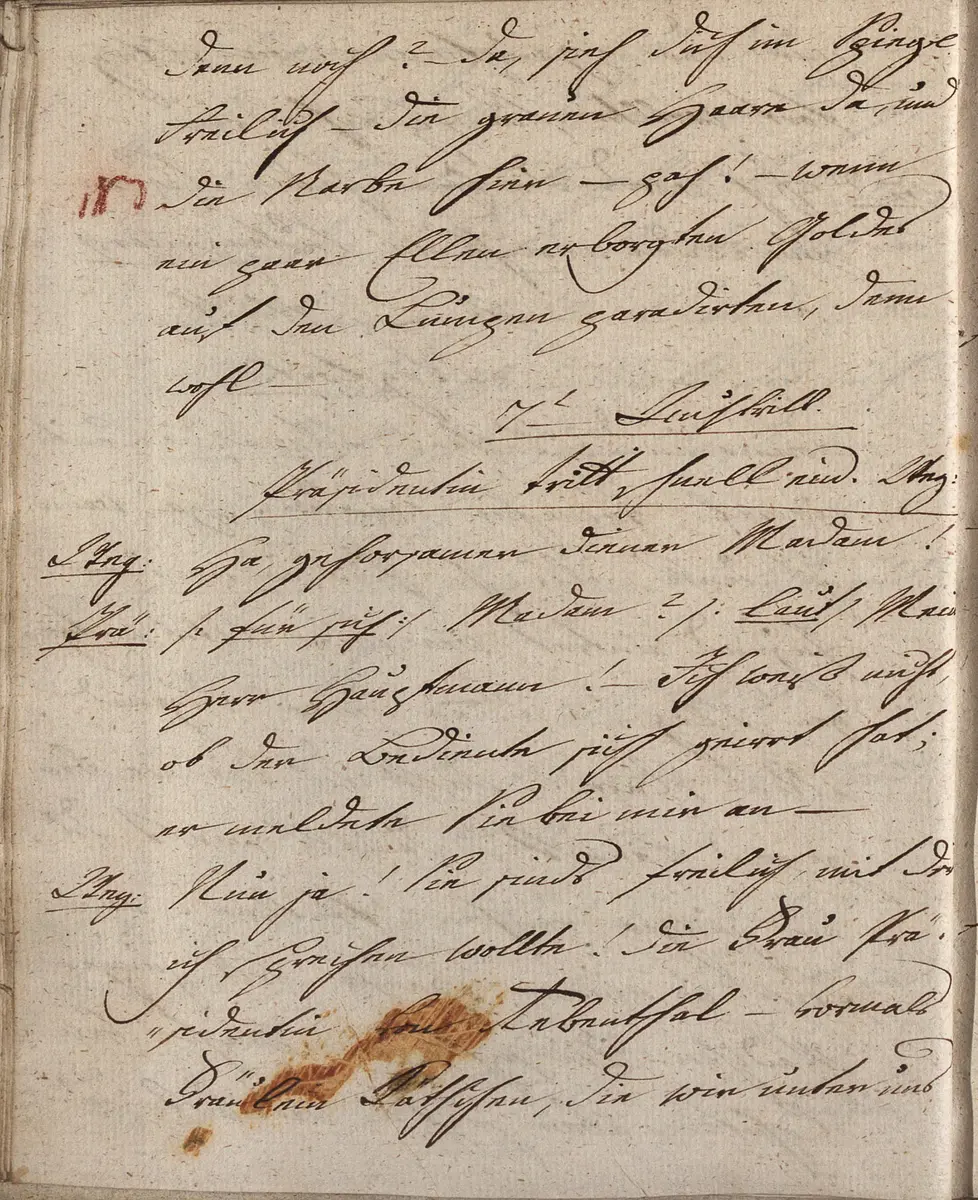 denn noch? – da, sieh dich im Spiegel
freilich – die grauen Haare da, und
die Narbe hier – pah! – wenn
ein paar Ellen erborgten Goldes
auf den Lumpen paradirten, denn
wohl –
7t Auftritt.
Präsidentin tritt schnell ein. Steg:
Steg: Ha, gehorsamer diener Madam!
Prä: /: für sich :/ Madam? /: laut / Mein
Herr Hauptmann! – Ich weiß nicht,
ob der Bediente sich geirrt hat;
er meldete Sie bei mir an –
Steg: Nun ja! Sie sinds freilich, mit der
ich sprechen wollte! die Frau Prä-
sidentin von Rebenthal – vormals
Fräulein, die wir unter uns